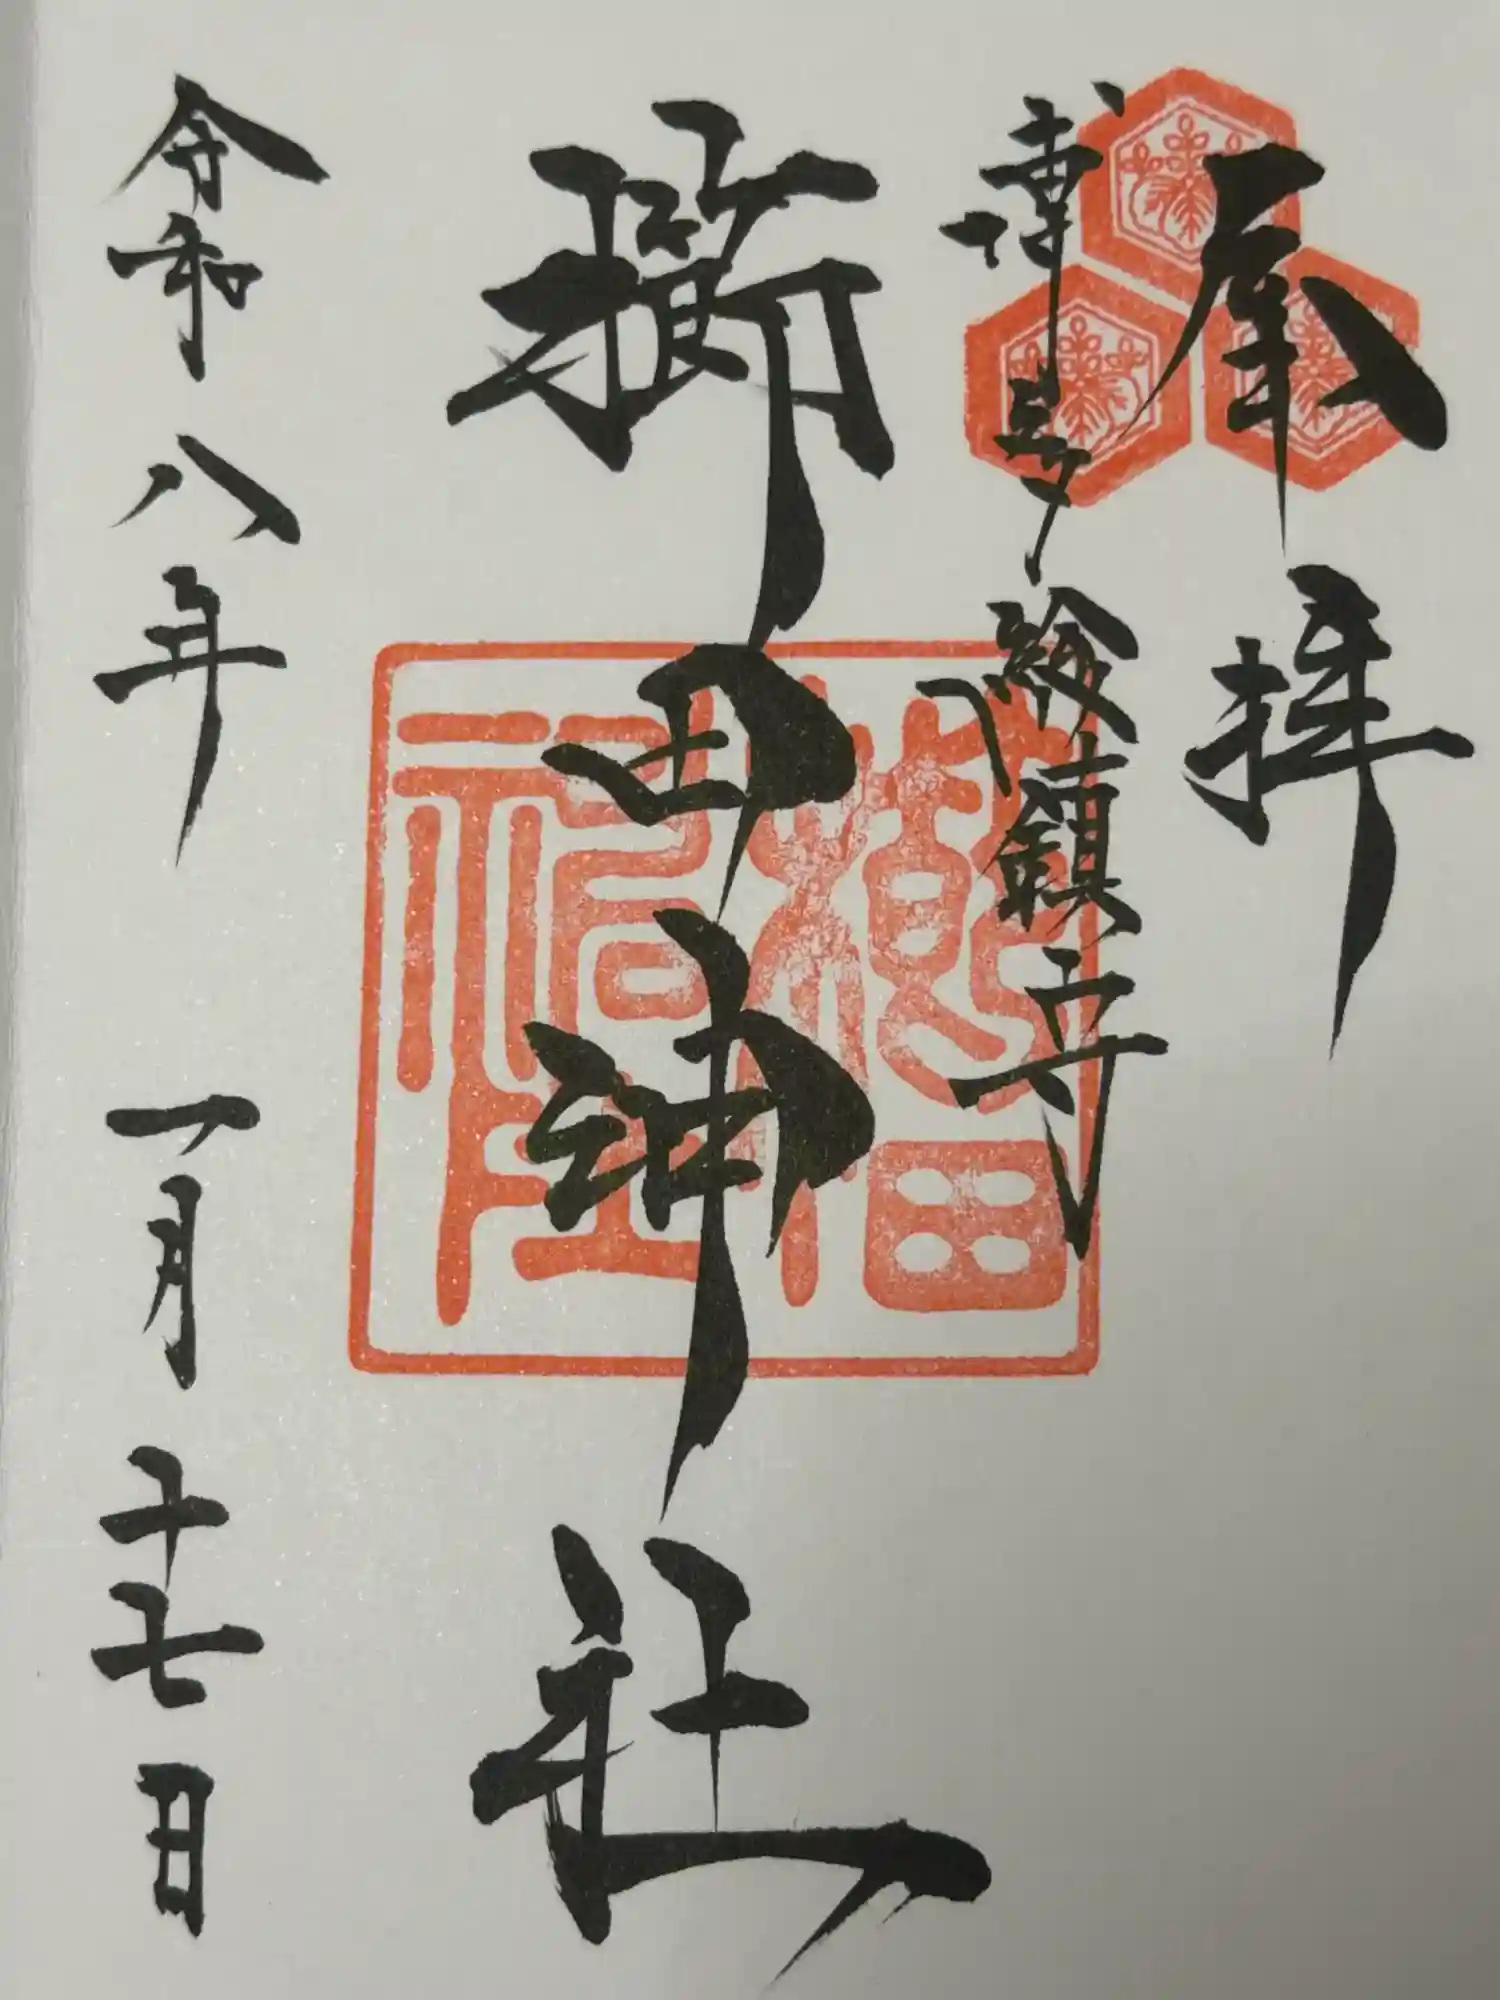 奉拝
博多総鎮守
櫛田神社
櫛田神社
令和八年 一月十七日